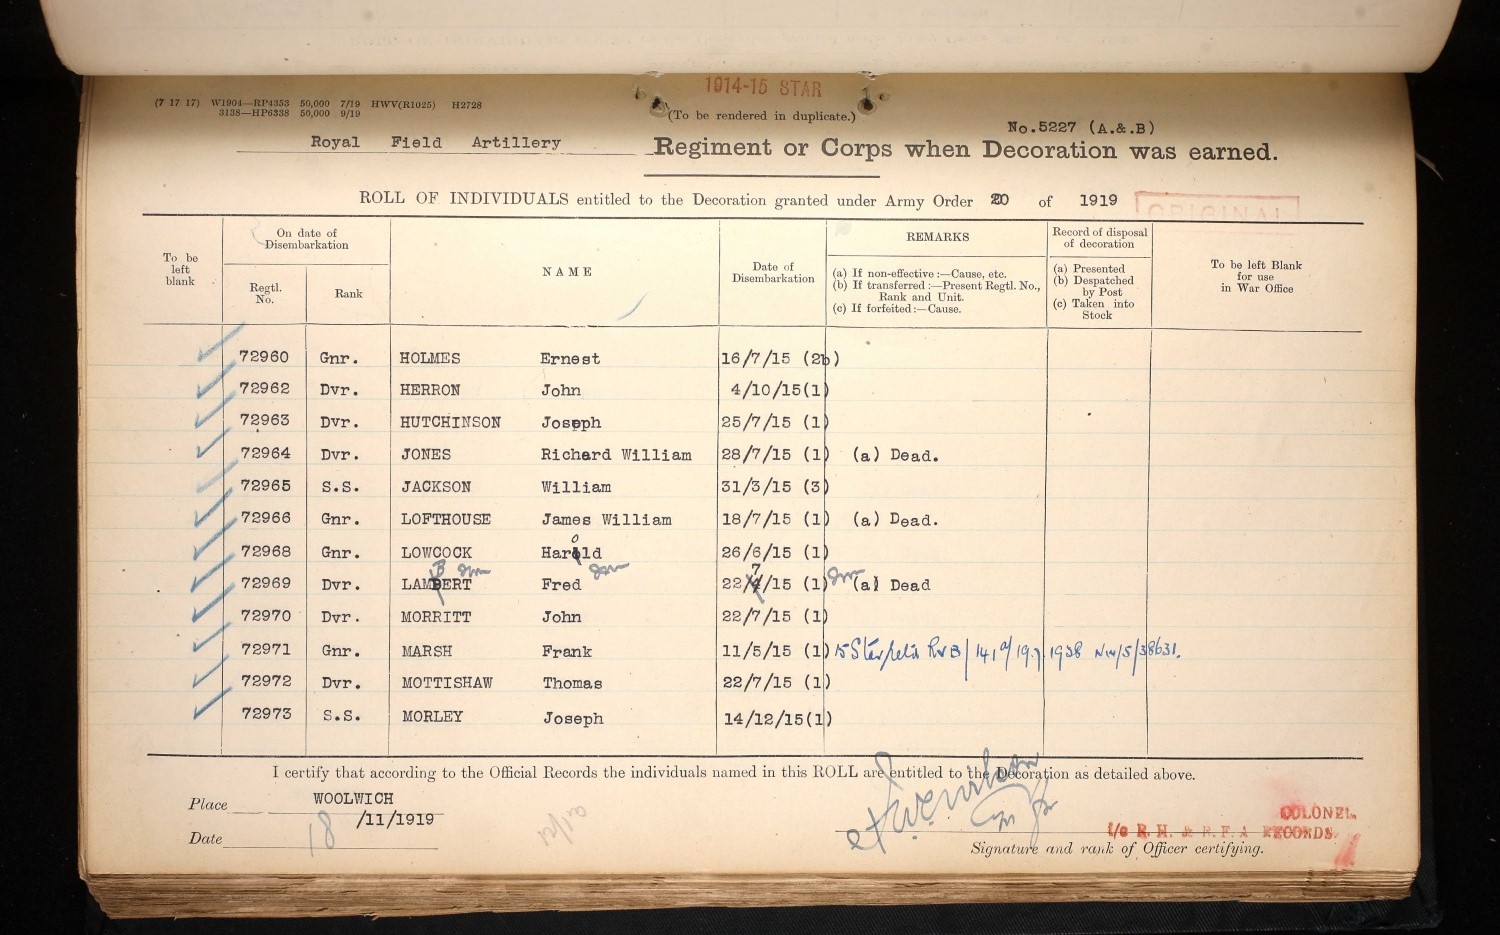 1914-15 STAR
(7 17 17) W1904—RP4353 50,000 7/19 HWV(R1025) H2728
3138—HP6338 50,000 9/19
(To be rendered in duplicate.)
No.5227 (A.&.B)
Royal Field Artillery Regiment or Corps when Decoration was earned.
ROLL OF INDIVIDUALS entitled to the Decoration granted under Army Order 20 of 1919
ORIGINAL
To be left blank
On date of Disembarkation
Regtl. No.
Rank
NAME
Date of Disembarkation
REMARKS
(a) If non-effective :—Cause, etc.
(b) If transferred :—Present Regtl. No., Rank and Unit.
(c) If forfeited :—Cause.
Record of disposal of decoration
(a) Presented
(b) Despatched by Post
(c) Taken into Stock
To be left Blank for use in War Office
72960 Gnr. HOLMES Ernest 16/7/15 (2b)
72962 Dvr. HERRON John 4/10/15(1)
72963 Dvr. HUTCHINSON Joseph 25/7/15 (1)
72964 Dvr. JONES Richard William 28/7/15 (1) (a) Dead.
72965 S.S. JACKSON William 31/3/15 (3)
72966 Gnr. LOFTHOUSE James William 18/7/15 (1) (a) Dead.
72968 Gnr. LOWCOCK Harold 26/6/15 (1)
72969 Dvr. LAMBERT Fred 22/7/15 (1) (a) Dead
72970 Dvr. MORRITT John 22/7/15 (1)
72971 Gnr. MARSH Frank 11/5/15 (1) 1938
72972 Dvr. MOTTISHAW Thomas 22/7/15 (1)
72973 S.S. MORLEY Joseph 14/12/15(1)
I certify that according to the Official Records the individuals named in this ROLL are entitled to the Decoration as detailed above.
Place WOOLWICH
Date 18/11/1919
COLONEL
i/c R. H. & R. F. A RECORDS.
Signature and rank of Officer certifying.